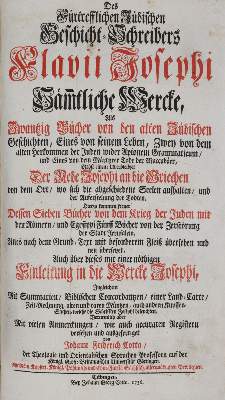 Des
Fürtrefflichen Jüdischen
Geschicht-Schreibers
Flavii Josephi
Sämtliche Wercke,
Als
Zwantzig Bücher von den alten Jüdischen
Geschichten, Eines von seinem Leben, Zwey von dem
alten Herkommen der Juden wider Apionem Grammaticum,
und Eines von dem Märtyrer Tode der Maccabäer,
Der Rede Josephi an die Griechen
von dem Ort, wo sich die abgeschiedene Seelen aufhalten, und
der Auferstehung der Todten,
Dessen Sieben Bücher von dem Krieg der Juden mit
den Römern, und Egesippi Fünff Bücher von der Zerstörung
der Stadt Jerusalem,
Alles nach dem Grund-Text mit besonderem Fleiß übersehen und
neu übersetzt.
Auch über dieses mit einer nöthigen
Einleitung in die Wercke Josephi,
Ingleichen
Mit Summarien, Biblischen Concordantzen, einer Land-Carte,
Mit vielen Anmerckungen, wie auch accuraten Registern
versehen und ausgefertiget
von
Johann Friderich Cotta,
der Theologie und Orientalischen Sprachen Professore auf der
Tübingen,